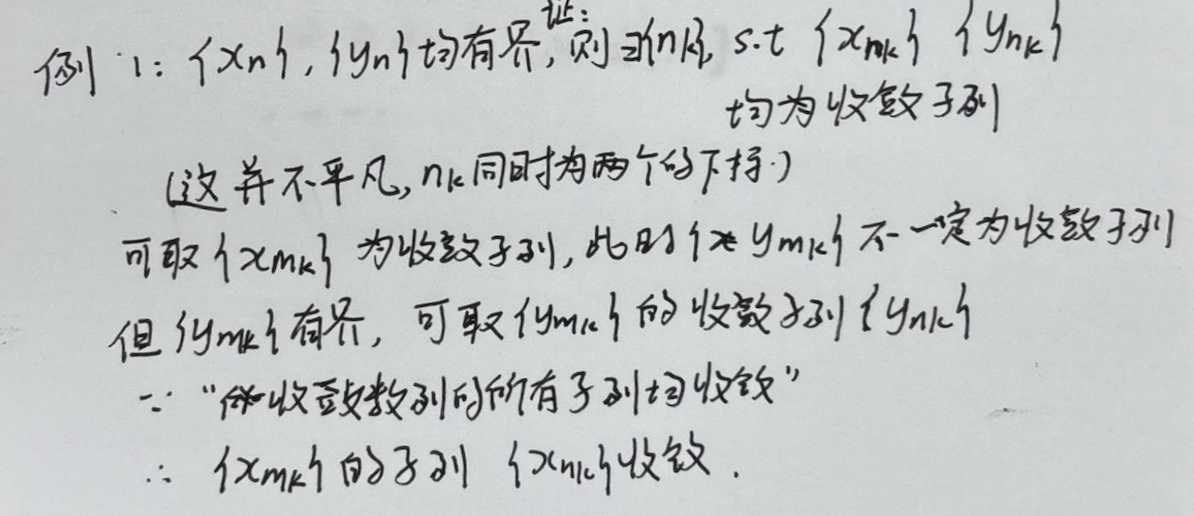 例1: {xn}, {yn}均有界, 证: 则∃{nk}, s.t {xnk} {ynk}
均为收敛子列
(这并不平凡, nk同时为两个的下标.)
可取{xmk}为收敛子列, 此时{ymk}不一定为收敛子列
但{ymk}有界, 可取{ymk}的收敛子列{ynk}
∵ “收敛数列的所有子列均收敛”
∴ {xmk}的子列 {xnk}收敛.